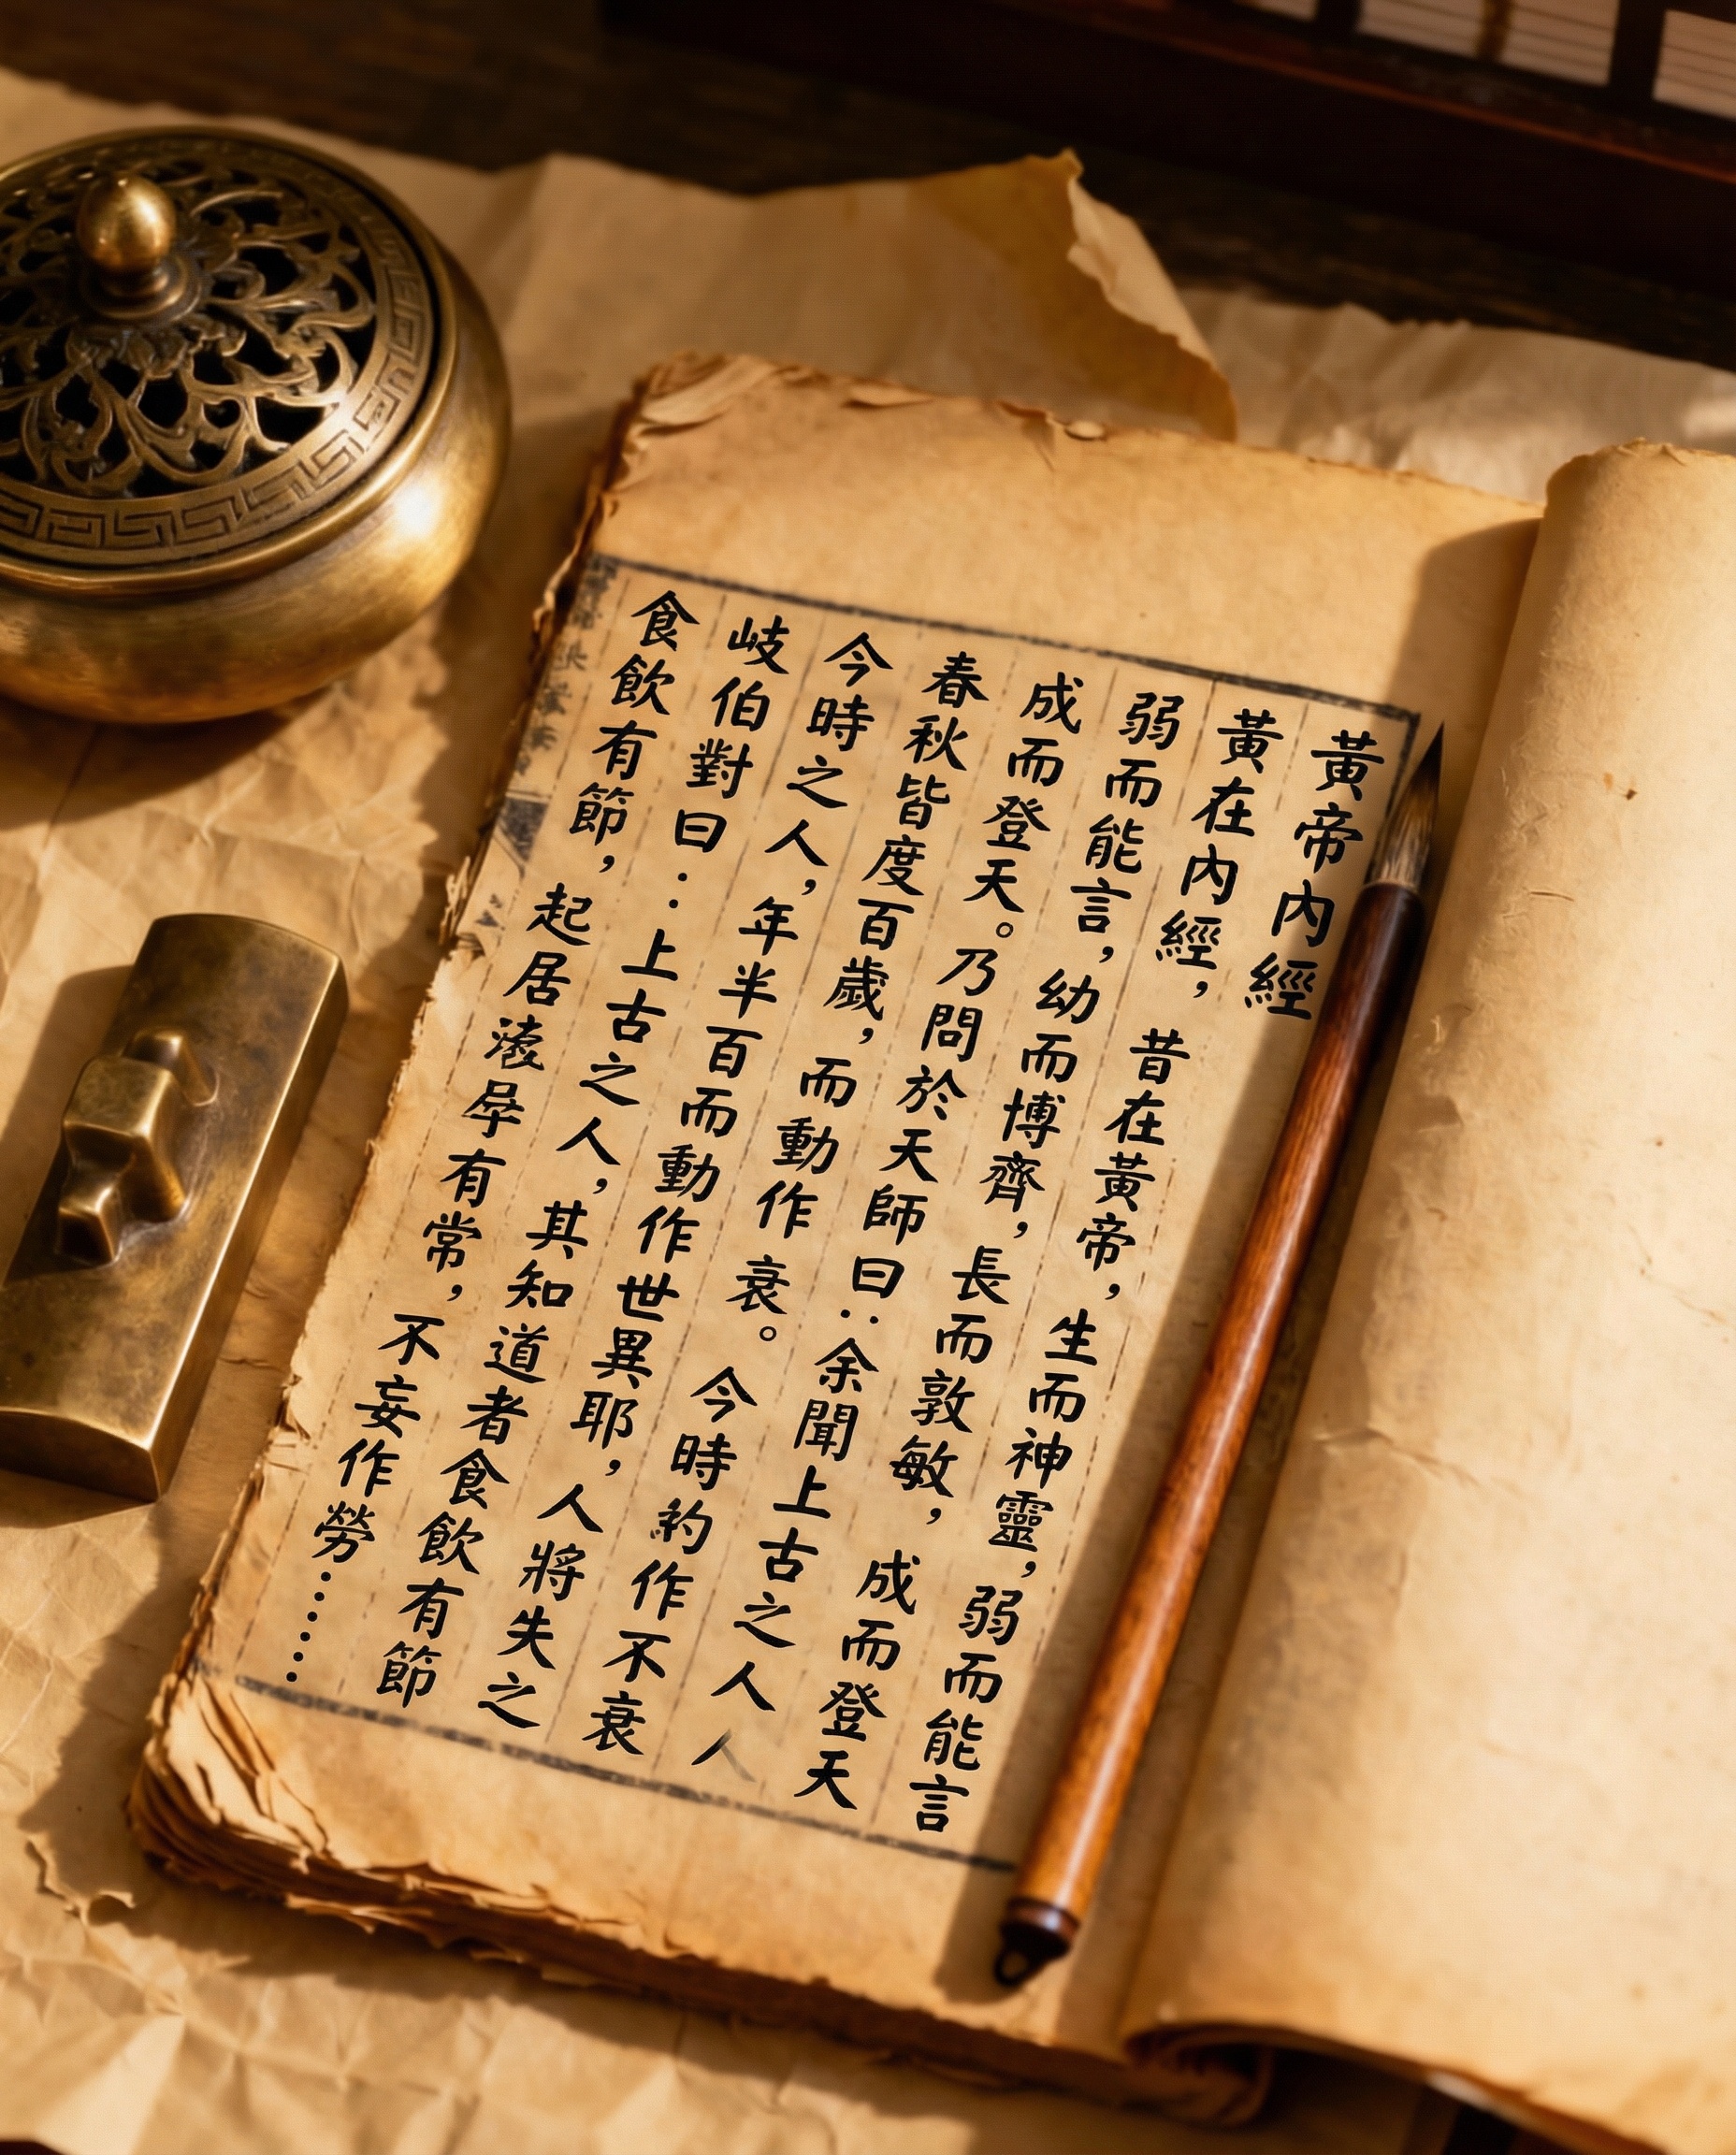 黃帝內經
黃在內經，昔在黃帝，生而神靈，弱而能言
弱而能言，幼而博齊，長而敦敏，成而登天
成而登天。乃問於天師曰：余聞上古之人人
春秋皆度百歲，而動作衰。今時約作不衰
今時之人，年半百而動作世異耶，人將失之
岐伯對曰：：上古之人，其知道者食飲有節
食飲有節，起居有常，不妄作勞……